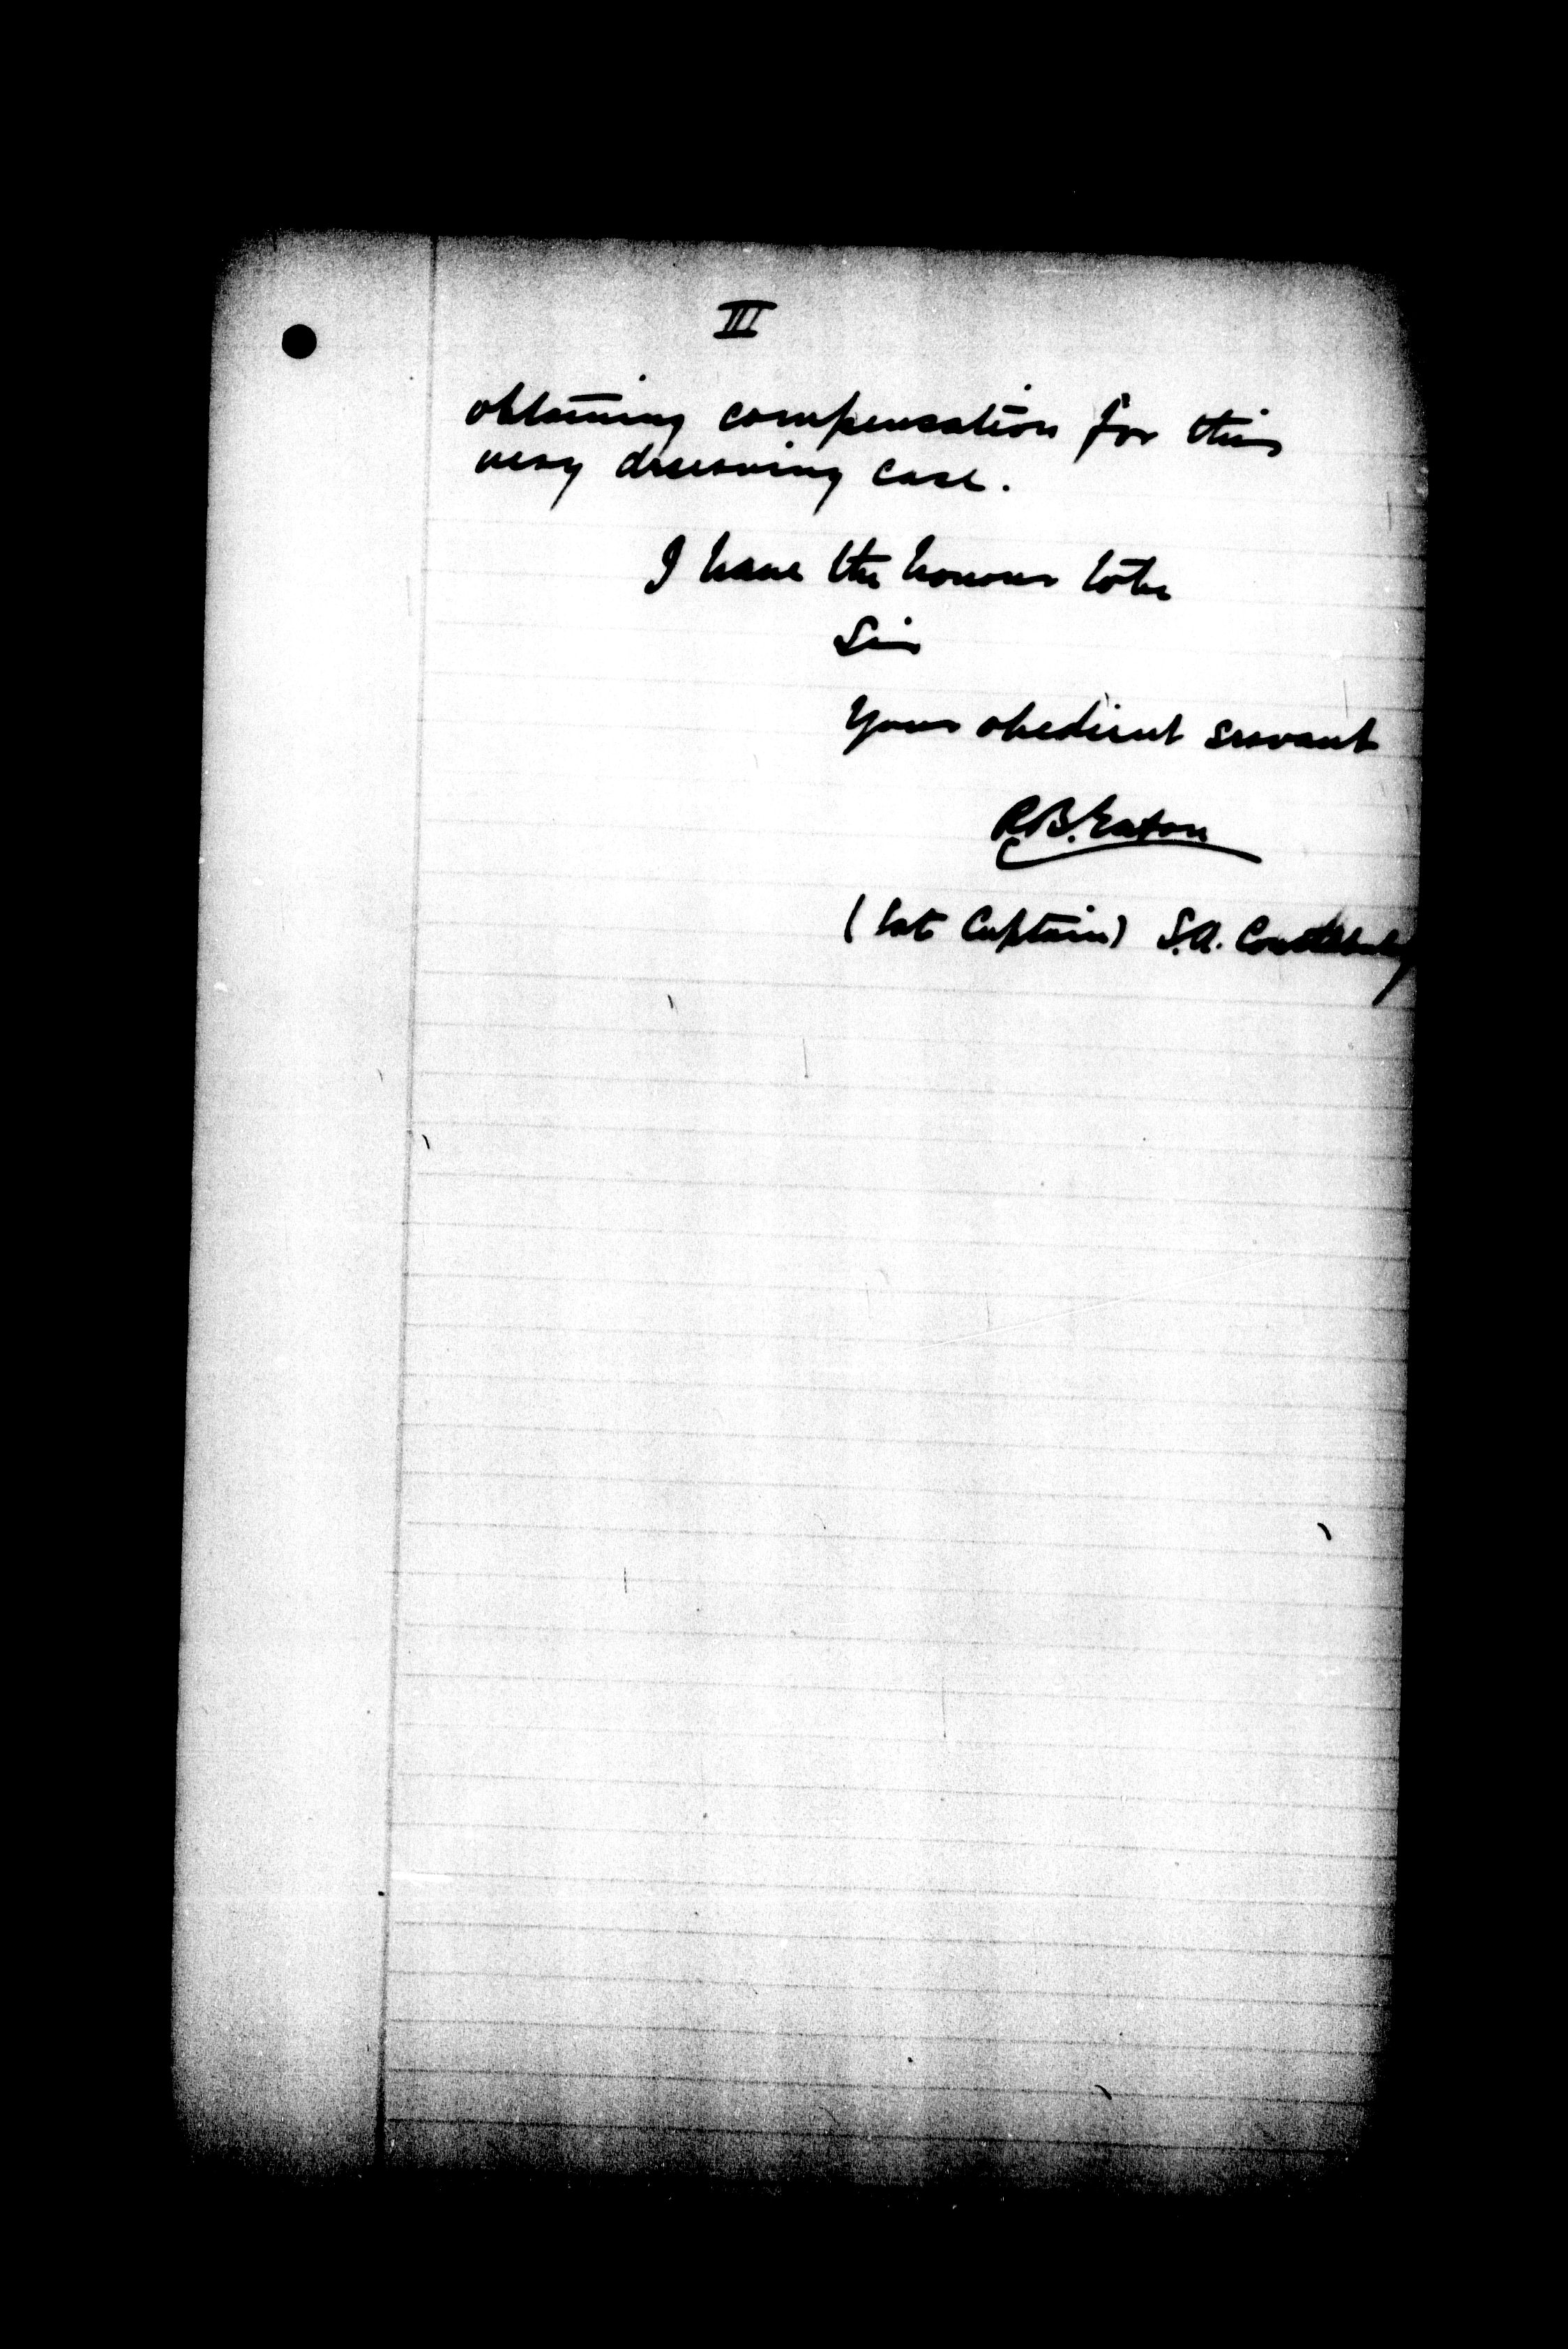 III
obtaining compensation for this
very deserving case.
I have the honour to be
Sir
Your obedient servant
R.B. Eaton
(late Captain) S.A. Constabulary